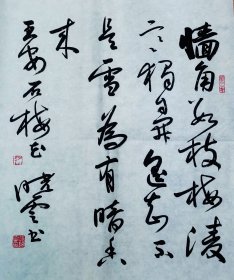 墙角数枝梅凌
寒独自开遥知不
是雪为有暗香
来
王安石梅花 晓云书